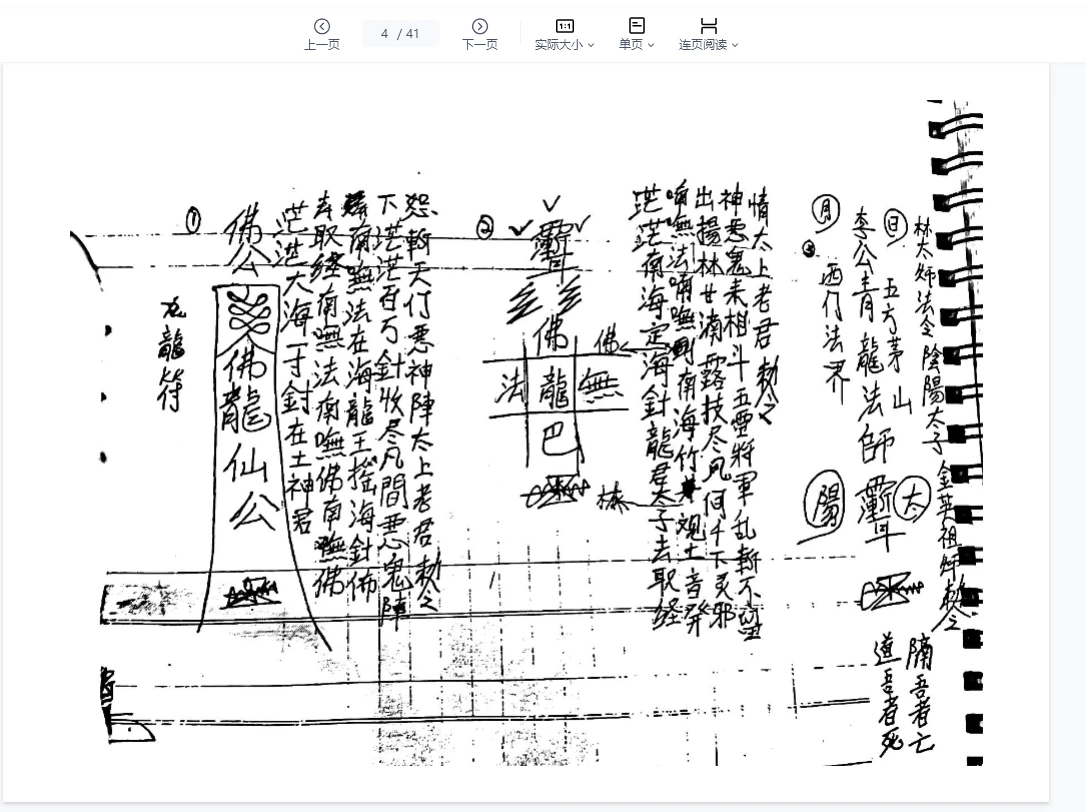 上一页
4 / 41
下一页
1:1
实际大小
单页
连页阅读
林太師法令陰陽太子金英祖師勅令
隔吾者亡
日
五方茅山
太
道吾者死
李公青龍法師
月
陽
③
西们法界
情太上老君勅令
神悪鬼来相斗五雷將軍乱斬不留
出揚林甘滴露技尽凡何千下灵邪
喃嘸法喃嘸南海竹观士音發
茫茫南海定海針龍君太子去取経
②
佛
佛
法
龍
無
巴
林
怨斬天们悪神陣太上老君勅令
下茫茫百丐針收尽凡間悪鬼陣
南嘸法在海龍王摇海針佈
奉取経南嘸法南嘸佛南嘸佛
茫茫大海一寸針在土神君
①
佛公
佛龍仙公
九龍符